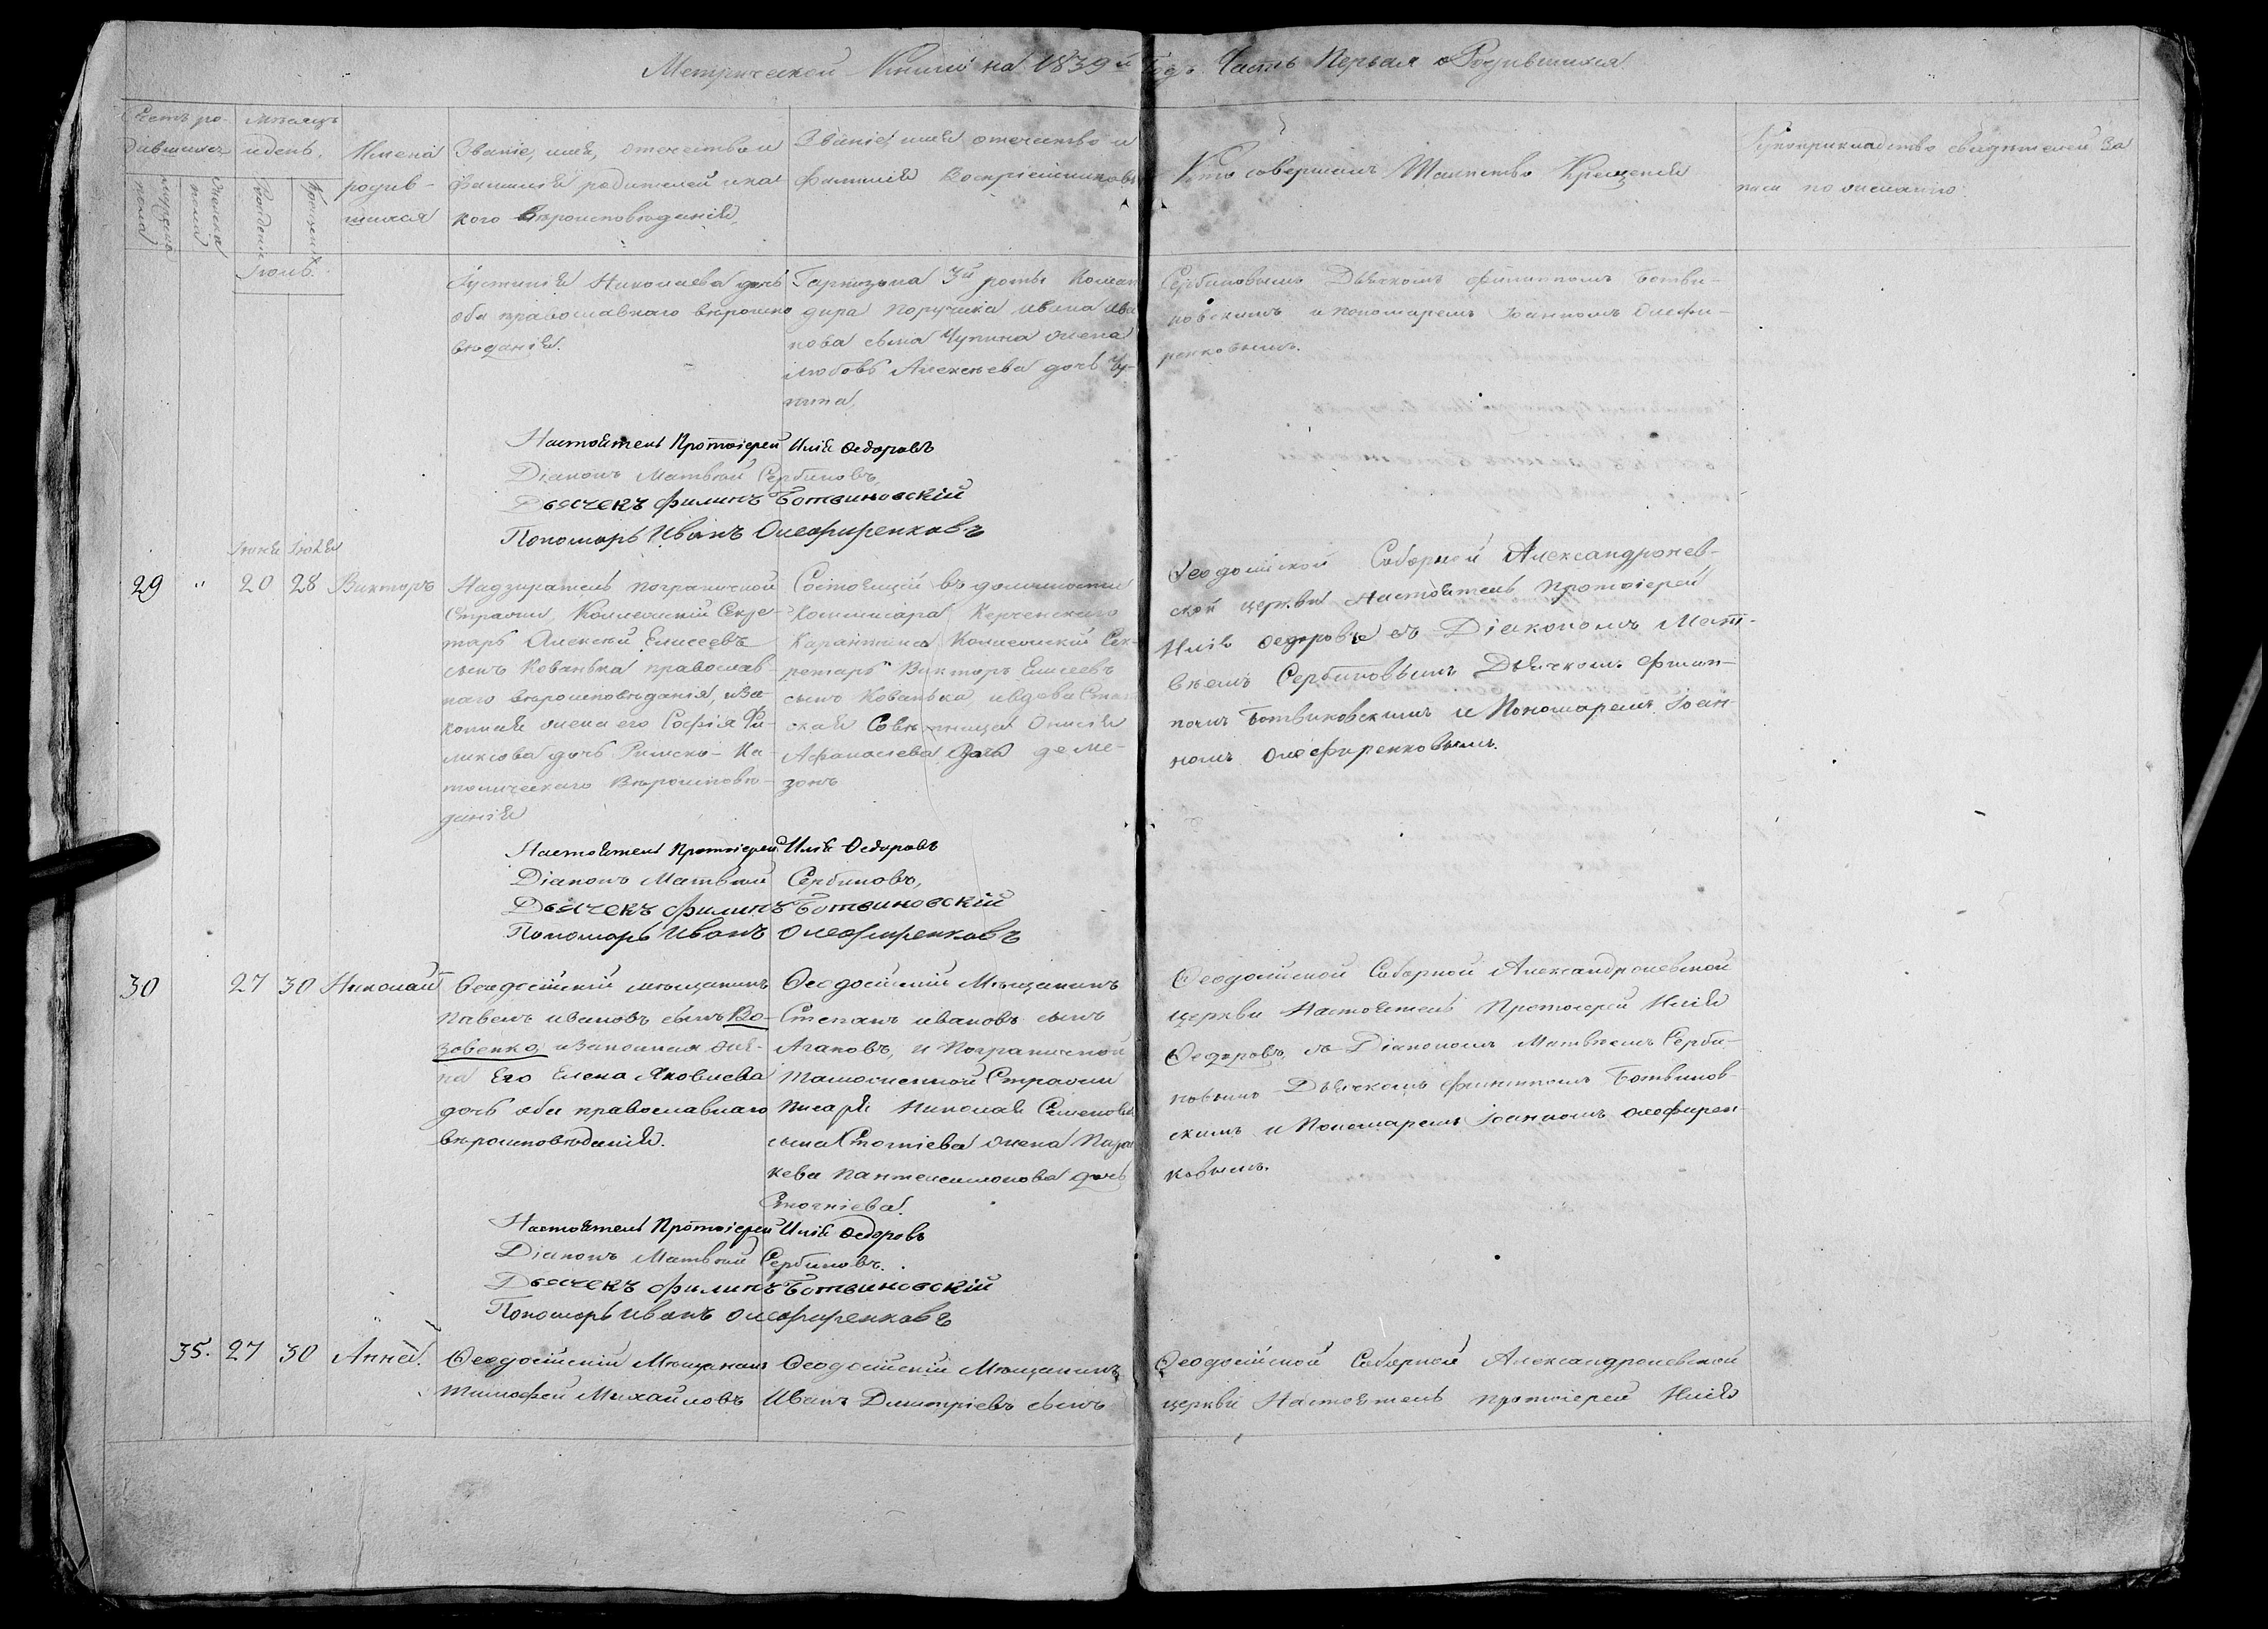 Метрической Книги на 1839й Годъ. Часть Первая о Родившихся.
Счетъ ро-
дившихся
мужеска
пола
женска
пола
Мѣсяцъ
и день.
Рожденія
Крещенія
Имена
родив-
шихся
Званіе, имя, отечество и
фамилія родителей и ка
кого вѣроисповѣданія,
Званіе, имя отечество и
фамилія Воспріемниковъ
Кто совершалъ Таинство Крещенія
Рукоприкладство свидѣтелей За
писи по желанію
Іюль.
Іустинія Николаева дочь
оба православнаго вѣроиспо
вѣданія.
Гарнизона 3й роты Коман
дира Поручика Ивана Ива
нова сына Чупина жена
Любовь Алексѣева дочь Чу-
пина
Сербиновымъ Дьячкомъ Филиппомъ Ботви-
новскимъ и пономаремъ Іоанномъ Олефи-
ренковымъ.
Настоятель Протоіерей Илія Ѳедоровъ
Діаконъ Матвѣй Сербиновъ,
Дьячекъ Филипъ Ботвиновскій
Пономарь Иванъ Олефиренковъ
Іюня Іюля
29 " 20 28 Викторъ
Надзиратель пограничной
Стражи, Колежскій Секре-
тарь Алексѣй Елисеевъ
сынъ Кованька православ-
наго вѣроисповѣданія, и За-
конная жена его Софія Фи-
ликсова дочь Римско-Ка-
толическаго Вѣроисповѣ-
данія
Состоящій въ должности
Коммисара Керченскаго
Карантина Колежскій Сек-
ретарь Викторъ Елисеевъ
сынъ Кованька и вдова Стат
ская Совѣтница Онисія
Афанасіева дочь де Ме-
зонъ
Ѳеодосійской Соборной Александронев-
ской церкви Настоятель Протоіерей
Илія Ѳедоровъ съ Діакономъ Мат-
вѣемъ Сербиновымъ Дьячкомъ Филип-
помъ Ботвиновскимъ и Пономаремъ Іоан-
номъ Олефиренковымъ.
Настоятель Протоіерей Илія Ѳедоровъ
Діаконъ Матвѣй Сербиновъ,
Дьячекъ Филипъ Ботвиновскій
Пономарь Иванъ Олефиренковъ
30 27 30 Николай
Ѳеодосійскій мѣщанинъ
Павелъ Ивановъ сынъ Во-
зовенко, и Законная же-
на Его Елена Яковлева
дочь оба православнаго
вѣроисповѣданія.
Ѳеодосійскій Мѣщанинъ
Степанъ Ивановъ сынъ
Агаповъ, и Пограничной
Таможенной Стражи
Писаря Николая Семенова
сына Стогніева жена Парас
кева Пантелеимонова дочь
Стогніева.
Ѳеодосійской Соборной Александроневской
церкви Настоятель Протоіерей Илія
Ѳедоровъ, съ Діакономъ Матвѣемъ Серби-
новымъ Дьячкомъ Филиппомъ Ботвинов-
скимъ и Пономаремъ Іоанномъ Олефирен
ковымъ.
Настоятель Протоіерей Илія Ѳедоровъ
Діаконъ Матвѣй Сербиновъ.
Дьячекъ Филипъ Ботвиновскій
Пономарь Иванъ Олефиренковъ
35. 27 30 Анна.
Ѳеодосійскій Мѣщанинъ
Тимофей Михайловъ
Ѳеодосійскій Мѣщанинъ
Иванъ Димитріевъ сынъ
Ѳеодосійской Соборной Александроневской
церкви Настоятель Протоіерей Илія